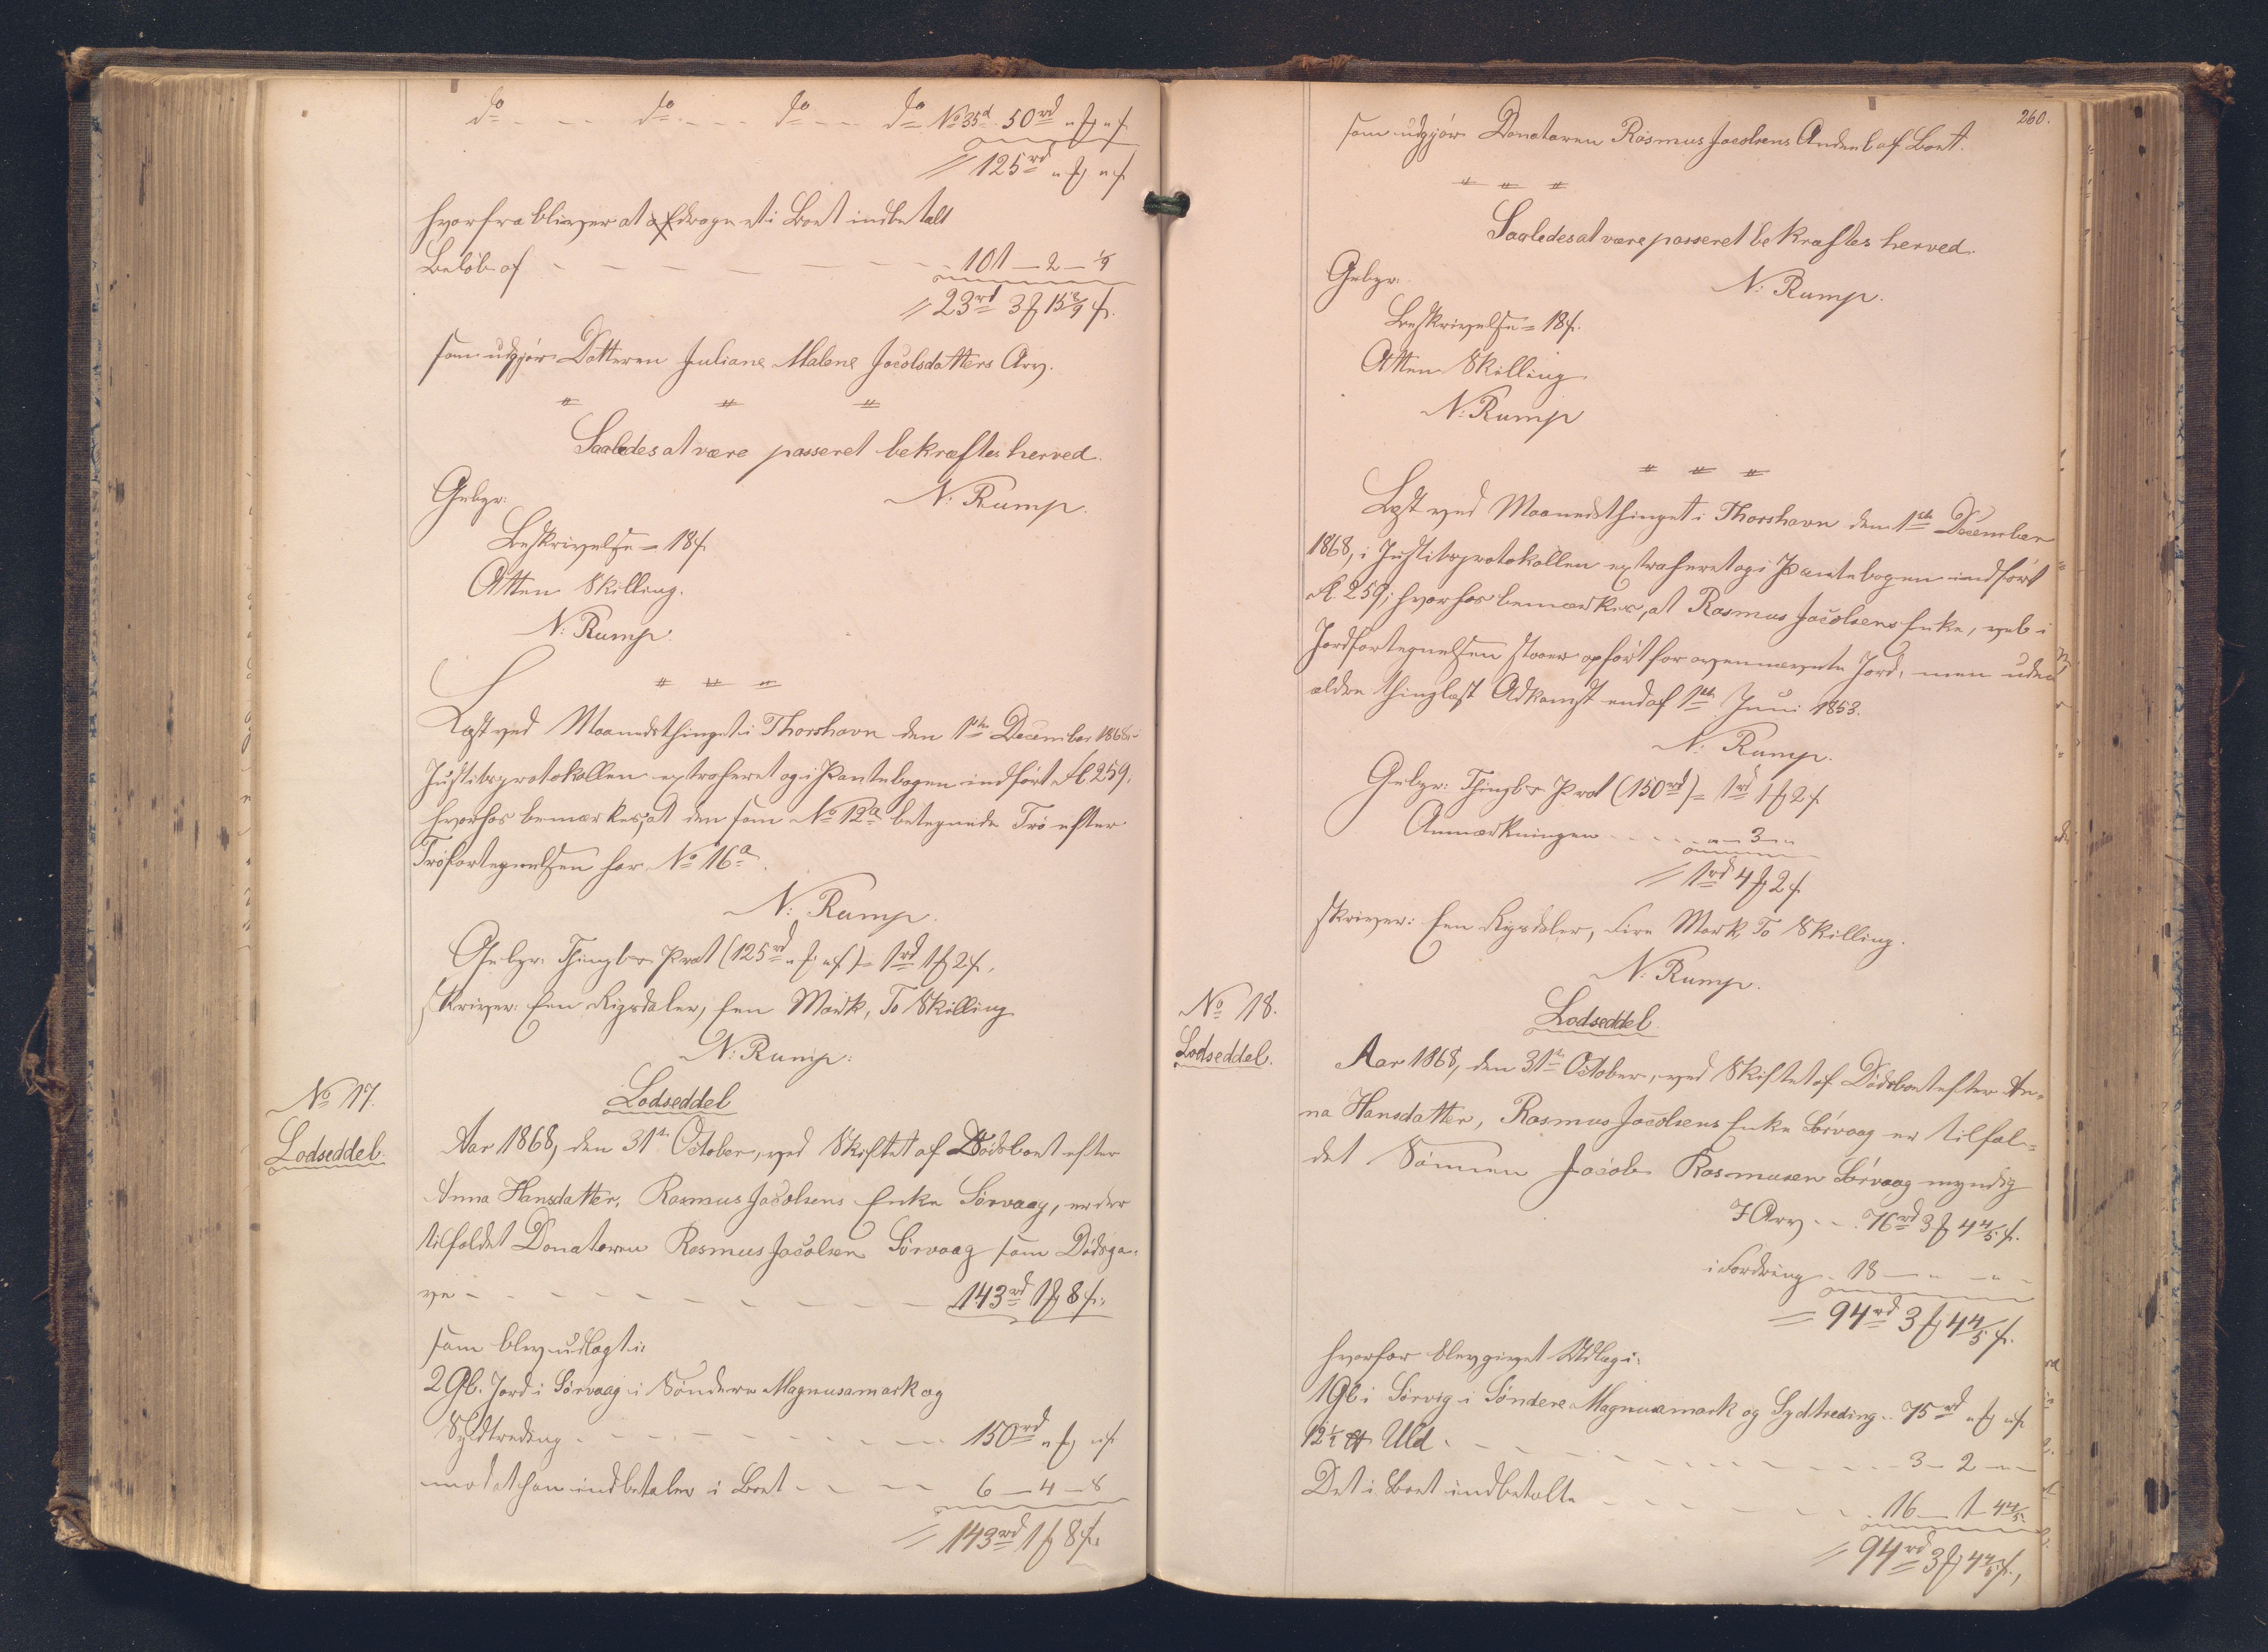 do - - - do - - - do - - - do No 35d 50rd " ß " s
= 125rd " ß " s
hvorfra bliver at afdrage det i Boet indbetalt
Beløb af - - - - - - - 101 - 2 - 1/9
= 23rd 3ß 15 8/9 s.
som udgjør Datteren Juliane Malene Jacobsdatters Arv.
" " "
Saaledes at være passeret bekræftes herved.
N: Rump.
Gebyr:
Beskrivelse = 18 s.
Atten Skilling.
N: Rump.
" " "
Læst ved Maanedsthinget i Thorshavn den 1ste December 1868, i
Justitsprotokollen extraheret og i Pantebogen indført Fol. 259,
hvorhos bemærkes, at den som No 12a betegnede Trø efter
Trøfortegnelsen har No 16a.
N: Rump.
Gebyr: Thingl. & Prot (125rd " ß " s) = 1rd 1ß 2 s.
skriver: Een Rigsdaler, Een Mark, To Skilling
N: Rump:
No 17.
Lodseddel.
Lodseddel
Aar 1868, den 31te October, ved Skiftet af Dødsboet efter
Anna Hansdatter, Rasmus Jacobsens Enke Sørvaag, er der
tilfaldet Donataren Rasmus Jacobsen Sørvaag som Dødsga-
ve - - - - - - - - 143rd 1ß 8 s.
som blev udlagt i:
2 Gl. Jord i Sørvaag i Søndere Magnusamark og
Sydtreding - - - - - - - - 150rd " ß " s
mod at han indbetaler i Boet - - - - 6 - 4 - 8
= 143rd 1ß 8 s.
260.
som udgjør Donataren Rasmus Jacobsens Andeel af Boet.
" " "
Saaledes at være passeret bekræftes herved.
N: Rump.
Gebyr:
Beskrivelse = 18 s.
Atten Skilling
N: Rump
" " "
Læst ved Maanedsthinget i Thorshavn den 1ste December
1868, i Justitsprotokollen extraheret og i Pantebogen indført
Fol. 259, hvorhos bemærkes, at Rasmus Jacobsens Enke, vel i
Jordfortegnelsen staaer opført for ovennævnte Jord, men uden
ældre thinglæst Adkomst end af 1ste Juni 1853.
N: Rump.
Gebyr: Thingl. & Prot (150rd) = 1rd 1ß 2 s
Anmærkningen - - - - " - 3 - "
= 1rd 4ß 2 s
skriver: Een Rigsdaler, Fire Mark, To Skilling.
N: Rump.
No 18.
Lodseddel.
Lodseddel
Aar 1868, den 31te October, ved Skiftet af Dødsboet efter An-
na Hansdatter, Rasmus Jacobsens Enke Sørvaag er tilfal-
det Sønnen Jacob Rasmusen Sørvaag myndig
I Arv - - 76rd 3ß 4 4/5 s.
i Fordring - 18 - " - " -
= 94rd 3ß 4 4/5 s.
hvorfor blev givet Udlæg i:
1 Gl i Sørvig i Søndere Magnusamark og Sydtreding - 75rd " ß " s
12 1/2 ℔ Uld - - - - - - - - - 3 - 2 - " -
Det i Boet indbetalte - - - - - - 16 - 1 - 4 4/5
= 94rd 3ß 4 4/5 s.,